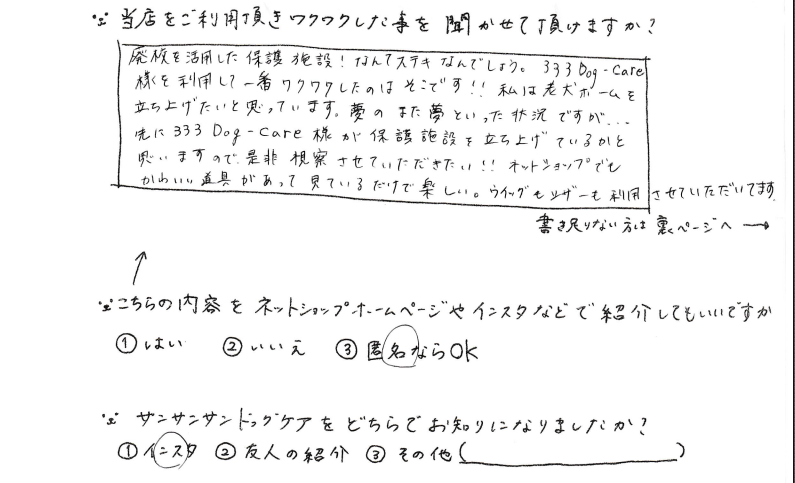 当店をご利用頂きワクワクした事を聞かせて頂けますか?
廃校を活用した保護施設!なんてステキなんでしょう。333 Dog-Care
様を利用して一番ワクワクしたのはそこです!!私は老犬ホームを
立ち上げたいと思っています。夢のまた夢といった状況ですが...
先に333 Dog-Care様が保護施設を立ち上げているかと
思いますので是非視察させていただきたい!!ネットショップでも
かわいい道具があって見ているだけで楽しい。ウイッグもシザーも利用させていただいてます
書き足りない方は裏ページへ→
こちらの内容をネットショップホームページやインスタなどで紹介してもいいですか
①はい ②いいえ ③匿名ならOK
サンサンサンドッグケアをどちらでお知りになりましたか?
①インスタ ②友人の紹介 ③その他( )